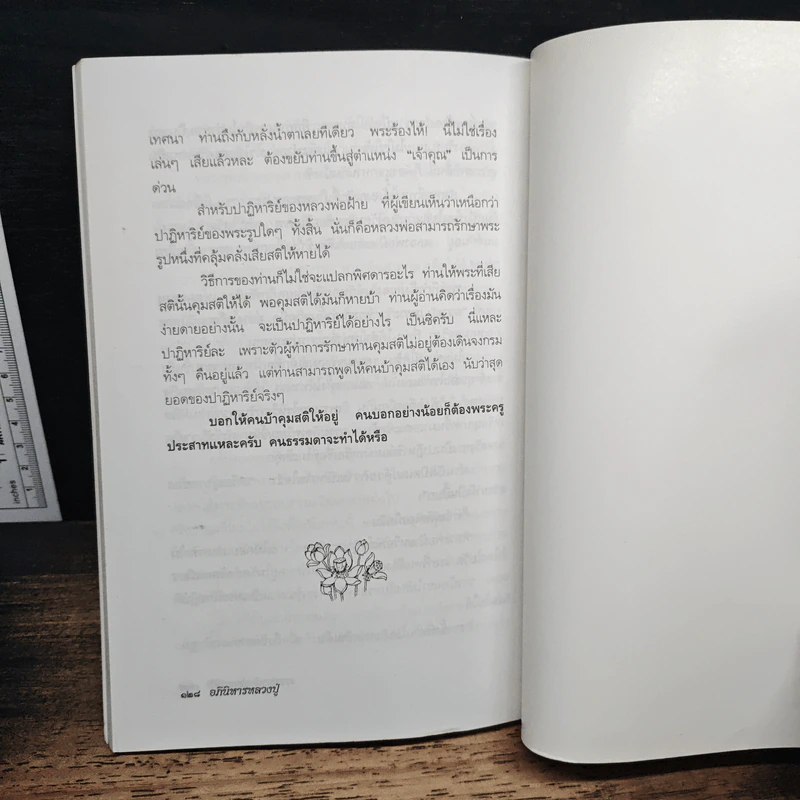 เทศนา ท่านถึงกับหลั่งน้ำตาเลยทีเดียว พระร้องไห้! นี่ไม่ใช่เรื่อง
เล่นๆ เสียแล้วหละ ต้องขยับท่านขึ้นสู่ตำแหน่ง “เจ้าคุณ” เป็นการ
ด่วน
สำหรับปาฏิหาริย์ของหลวงพ่อฝ้าย ที่ผู้เขียนเห็นว่าเหนือกว่า
ปาฏิหาริย์ของพระรูปใดๆ ทั้งสิ้น นั่นก็คือหลวงพ่อสามารถรักษาพระ
รูปหนึ่งที่คลุ้มคลั่งเสียสติให้หายได้
วิธีการของท่านก็ไม่ใช่จะแปลกพิศดารอะไร ท่านให้พระที่เสีย
สตินั้นคุมสติให้ได้ พอคุมสติได้มันก็หายบ้า ท่านผู้อ่านคิดว่าเรื่องมัน
ง่ายดายอย่างนั้น จะเป็นปาฏิหาริย์ได้อย่างไร เป็นซิครับ นี่แหละ
ปาฏิหาริย์ละ เพราะตัวผู้ทำการรักษาท่านคุมสติไม่อยู่ต้องเดินจงกรม
ทั้งๆ คืนอยู่แล้ว แต่ท่านสามารถพูดให้คนบ้าคุมสติได้เอง นับว่าสุด
ยอดของปาฏิหาริย์จริงๆ
บอกให้คนบ้าคุมสติให้อยู่ คนบอกอย่างน้อยก็ต้องพระครู
ประสาทแหละครับ คนธรรมดาจะทำได้หรือ
๑๒๘ อภินิหารหลวงปู่
inches
1
2
3
4
5
6